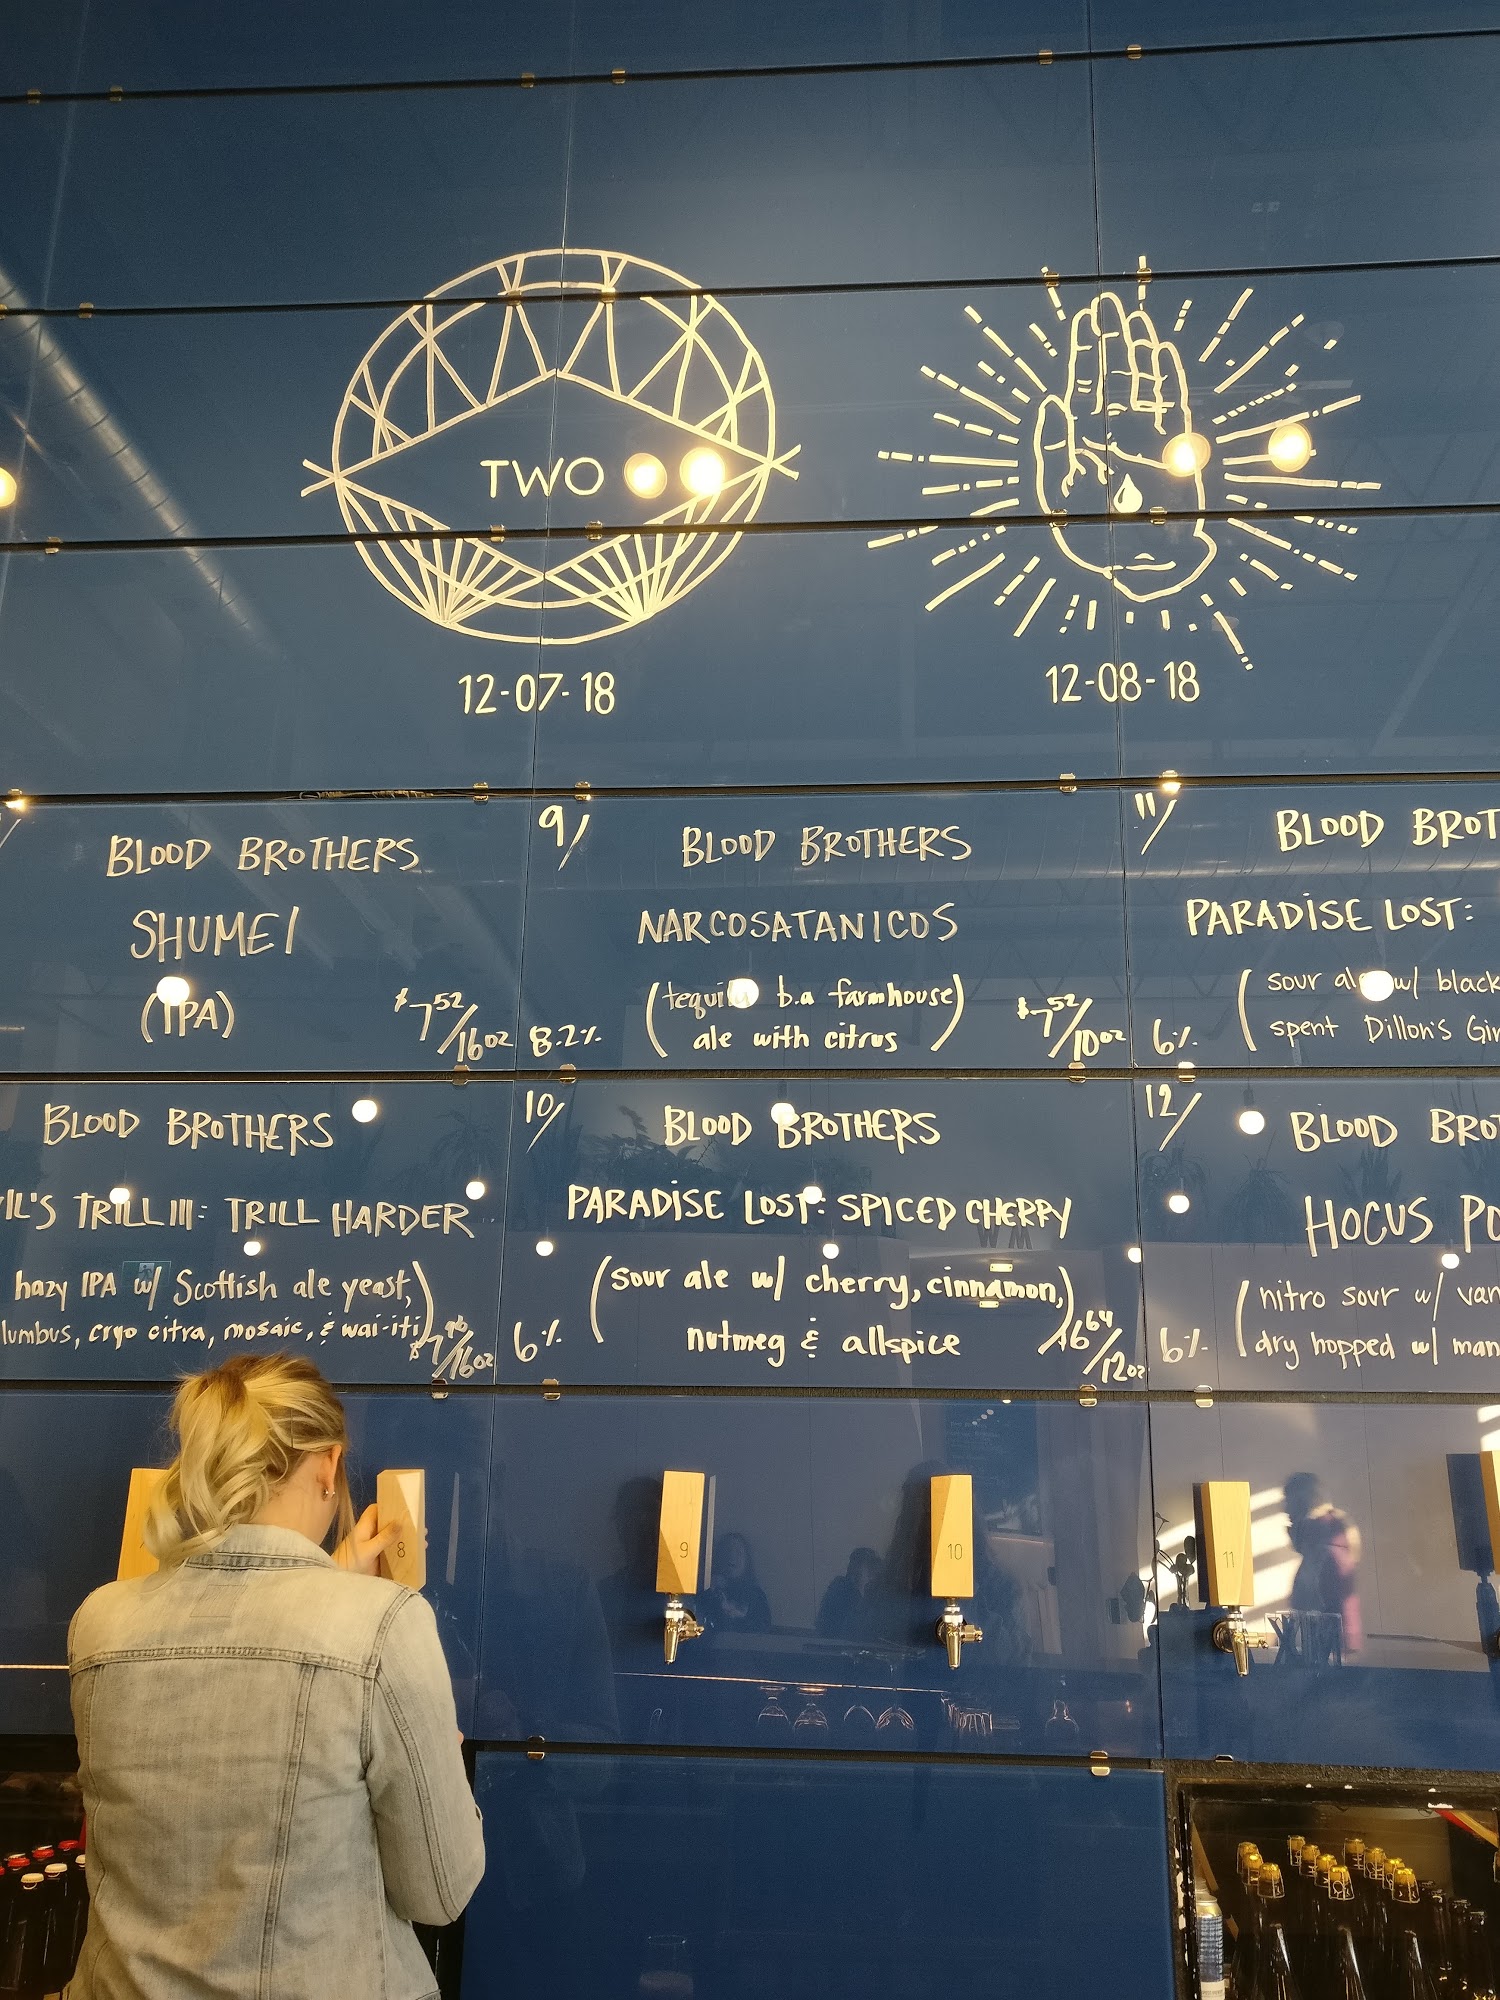 TWO
12-07-18
12-08-18
BLOOD BROTHERS
SHUMEI
(IPA)
$7.52/16oz
9/
BLOOD BROTHERS
NARCOSATANICOS
b.a farmhouse)
ale with citrus
8.2%
$7.52/10oz
11/
BLOOD
PARADISE LOST:
(sour w/ black
spent Dillon's
6%
BLOOD BROTHERS
TRILL III: TRILL HARDER
hazy IPA w/ Scottish ale yeast,
cryo citra, mosaic, & wai-iti)
$7.96/16oz
10/
BLOOD BROTHERS
PARADISE LOST: SPICED CHERRY
(sour ale w/ cherry, cinnamon,
nutmeg & allspice)
6%
$6.64/12oz
12/
BLOOD
HOCUS
(nitro sour w/
dry hopped w/
6%
8
9
10
11